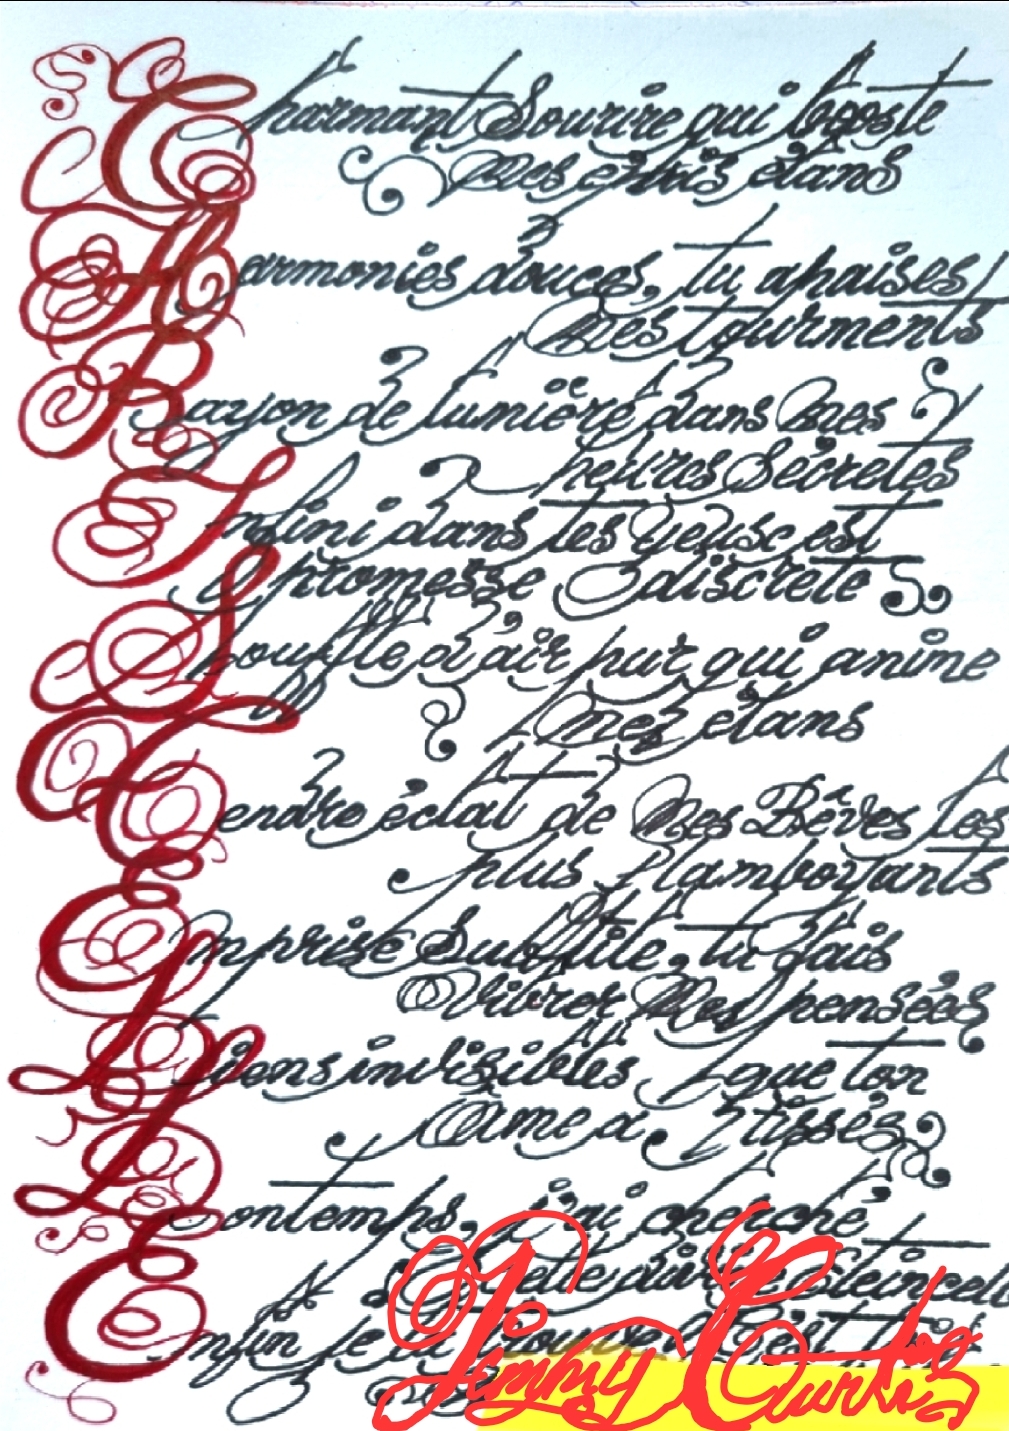 Charmant Sourire qui
Mes élans
Harmonies douces, tu apaises
Mes tourments
Rayon de lumière dans Mes
heures Secretes
Infini dans tes yeux est
promesse discrete
Souffle d'air pur qui anime
mes élans
Tendre éclat de Mes Rêves les
plus flamboyants
Emprise Subtile, tu fais
Vibrer Mes pensées
Liens invisibles que ton
Ame a tissés
Longtemps, j'ai cherché
Cette
Enfin je
Jimmy